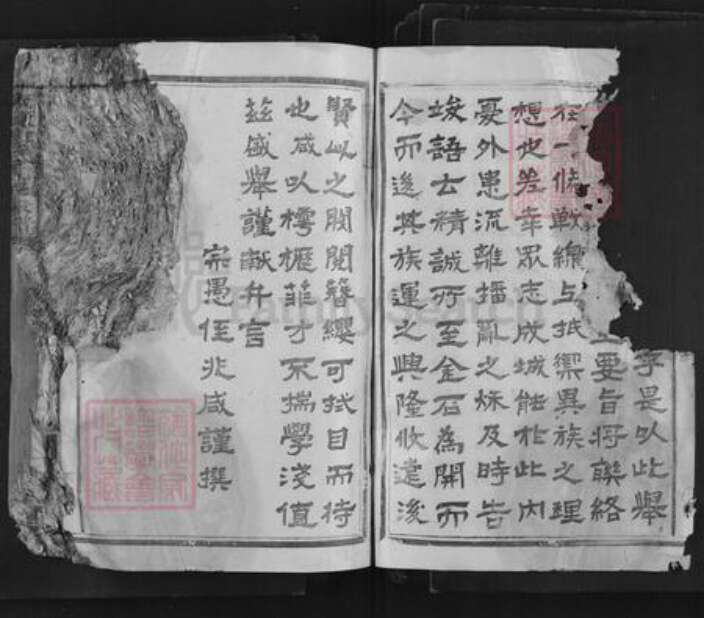 乎是以此舉
主要旨將聯絡
在一條戰線上抵禦異族之理
想也差幸眾志成城能於此內
憂外患流離播亂之秋及時告
竣語云精誠所至金石為開而
今而後其族運之興隆攸遠後
賢以之閥閱簪纓可拭目而待
也咸以樗櫪菲才不揣學淺值
茲盛舉謹献弁言
宗愚侄兆咸謹撰
FamilySearch